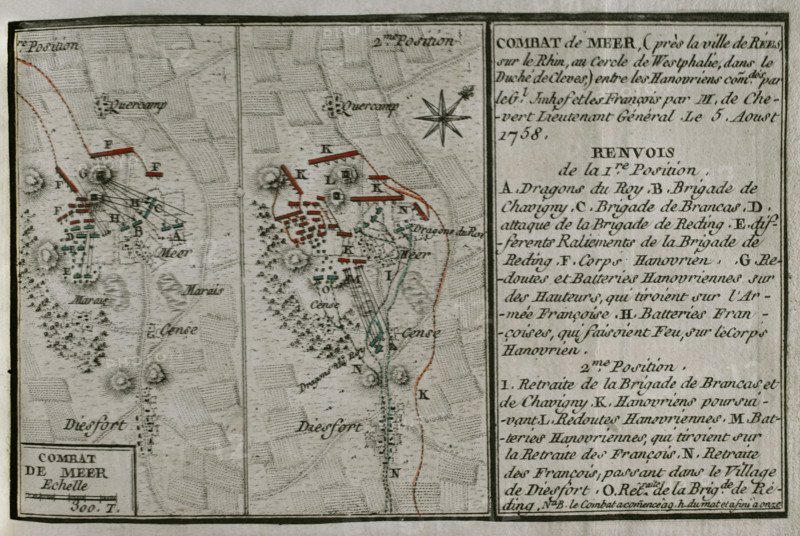 re Position
2.me Position
Quercamp
F
F
F
F
G
H
H
C
D
B
A
E
Meer
Marais
Marais
Cense
Diesfort
COMBAT
DE MEER
Echelle
300. T.
Quercamp
K
K
L
K
K
N
Dragons du Roy
Meer
O
M
I
Cense
Cense
Dragons du Roy
N
K
Diesfort
N
COMBAT de MEER, (près la ville de REES,
sur le Rhin, au Cercle de Westphalie, dans le
Duché de Cleves,) entre les Hanovriens com.dés par
le G.l Imhof et les François par M. de Che-
-vert Lieutenant Général. Le 5. Aoust
1758.
RENVOIS
de la 1.re Position.
A. Dragons du Roy. B. Brigade de
Chavigny, C. Brigade de Brancas, D.
attaque de la Brigade de Reding. E. dif-
-ferents Raliements de la Brigade de
Reding. F. Corps Hanovrien. G. Re-
-doutes et Batteries Hanovriennes sur
des Hauteurs, qui tiroient sur l'Ar-
-mée Françoise. H. Batteries Fran-
-çoises, qui faisoient Feu, sur le Corps
Hanovrien.
2.me Position.
I. Retraite de la Brigade de Brancas et
de Chavigny. K. Hanovriens poursui-
-vant. L. Redoutes Hanovriennes. M. Bat-
-teries Hanovriennes, qui tiroient sur
la Retraite des François. N. Retraite
des François, passant dans le Village
de Diesfort. O. Ret.raite de la Brig.de de Re-
ding, N.a B. le Combat a comencé a 9. h. du mat. et a fini a onze